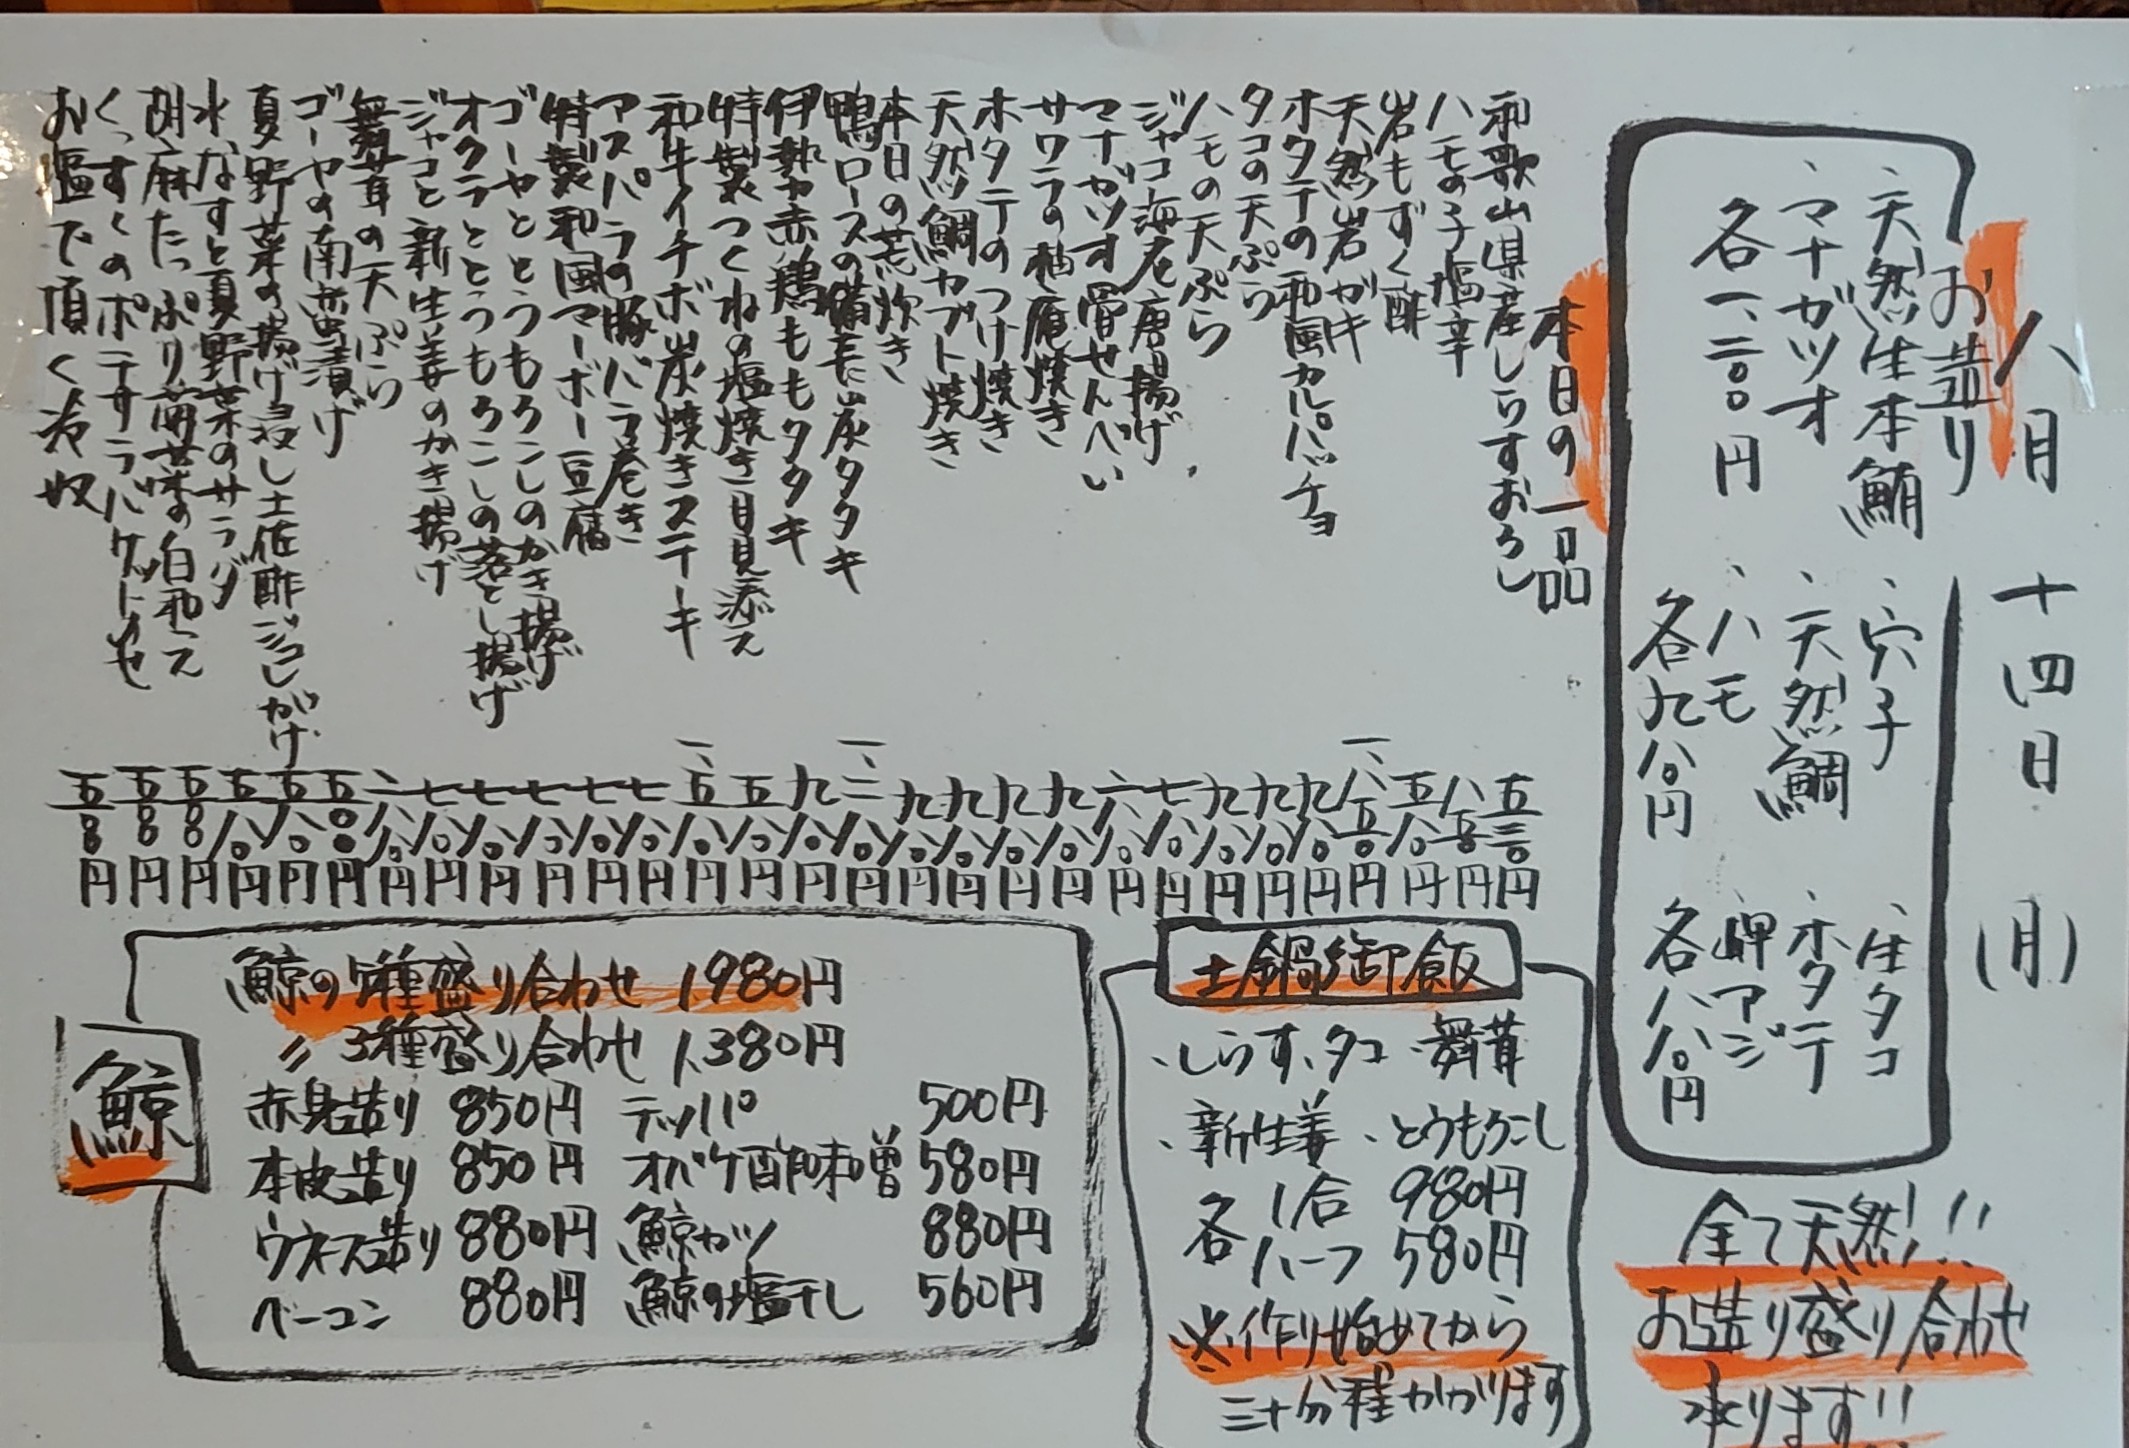 八月十四日(月)
お造り
、天然生本鮪
、マナガツオ
各一、二〇〇円
、穴子
、天然鯛
、ハモ
各九八〇円
、生タコ
、ホタテ
、岬アジ
各八八〇円
全て天然!!
お造り盛り合わせ
承ります!!
本日の一品
和歌山県産しらすおろし 五三〇円
ハモの子塩辛 八五〇円
岩もずく酢 五八〇円
天然岩ガキ 一、八五〇円
ホタテの和風カルパッチョ 九八〇円
タコの天ぷら 九八〇円
ハモの天ぷら 九八〇円
ジャコ海老唐揚げ 七八〇円
マナガツオ骨せんべい 六八〇円
サワラの柚庵焼き 九八〇円
ホタテのつけ焼き 九八〇円
天然鯛カブト焼き 九八〇円
本日の荒炊き 九八〇円
鴨ロースの備長炭タタキ 一、二八〇円
伊勢赤鶏ももタタキ 九八〇円
特製つくねの塩焼き目見添え 五八〇円
和牛イチボ炭焼きステーキ 一、五八〇円
アスパラの豚バラ巻き 七八〇円
特製和風マーボー豆腐 七八〇円
ゴーヤととうもろこしのかき揚げ 七八〇円
オクラととうもろこしの落とし揚げ 七八〇円
ジャコと新生姜のかき揚げ 七八〇円
舞茸の天ぷら 六八〇円
ゴーヤの南蛮漬け 五〇〇円
夏野菜の揚げ浸し土佐酢ジュレがけ 五八〇円
水なすと夏野菜のサラダ 五八〇円
胡麻たっぷり蒟蒻の白和え 五〇〇円
くっすくのポテサラバケット 五〇〇円
お塩で頂く冷奴 五〇〇円
土鍋御飯
、しらす、タコ、舞茸
、新生姜、とうもろこし
各 1合 980円
ハーフ 580円
※作り始めてから
三十分程かかります
鯨
鯨の5種盛り合わせ 1,980円
〃 3種盛り合わせ 1,380円
赤身造り 850円 テッパ 500円
本皮造り 850円 オバケ酢味噌 580円
ウネース造り 880円 鯨カツ 880円
ベーコン 880円 鯨の塩干し 560円